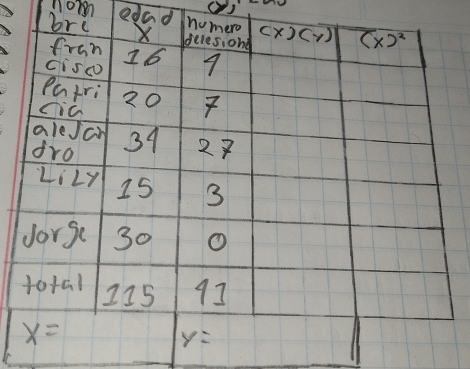 nom
bre edad X numero delesiones (X)(Y) (X)²
fran
cisco 16 4
Patri
cia 20 7
alejan
dro 34 27
LiLY 15 3
Jorge 30 0
total 115 41
X= Y=